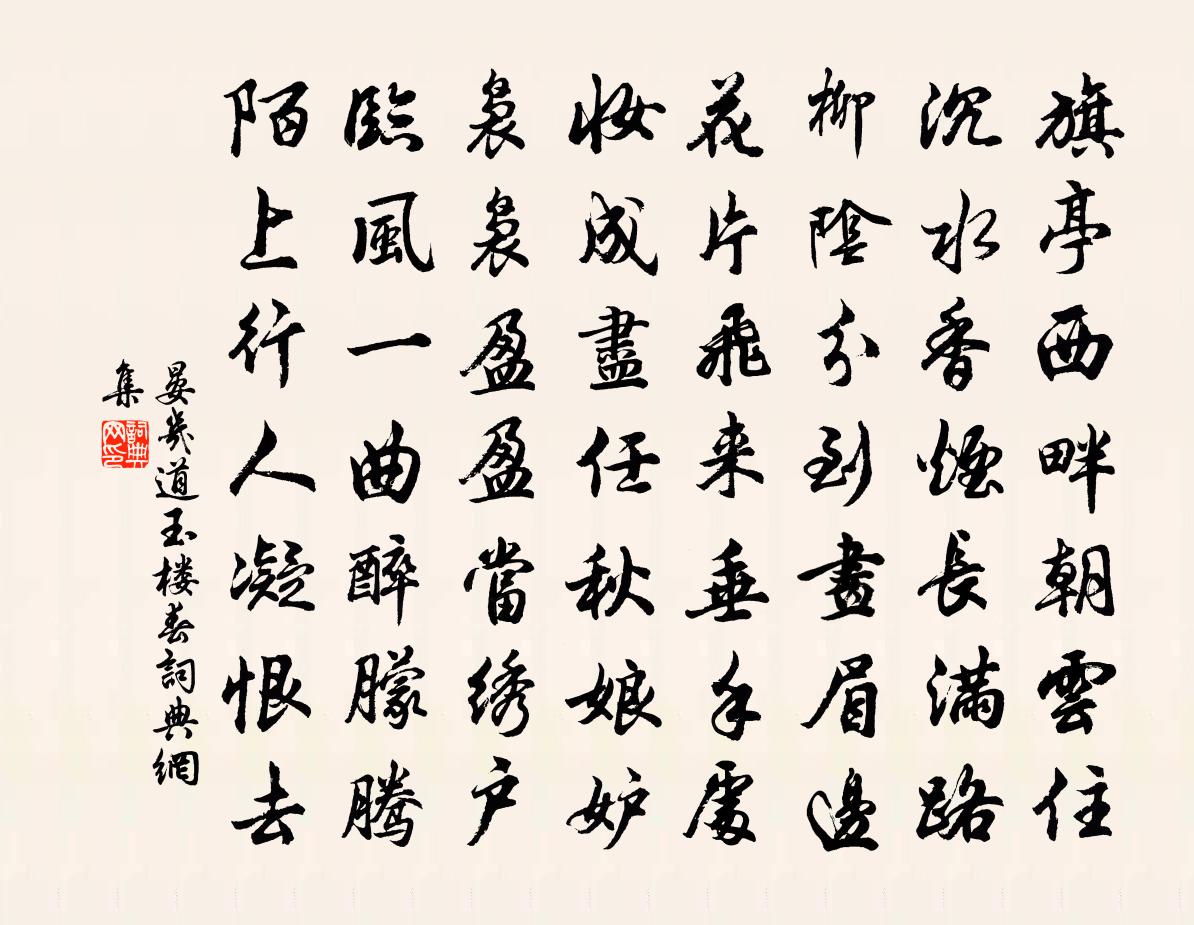 旗亭西畔朝雲住
沉水香煙長滿路
柳陰分到畫眉邊
花片飛来垂手處
妝成盡任秋娘妒
裊裊盈盈當綉户
臨風一曲醉朦騰
陌上行人凝恨去
晏幾道玉楼春詞典網
集
詞典网印